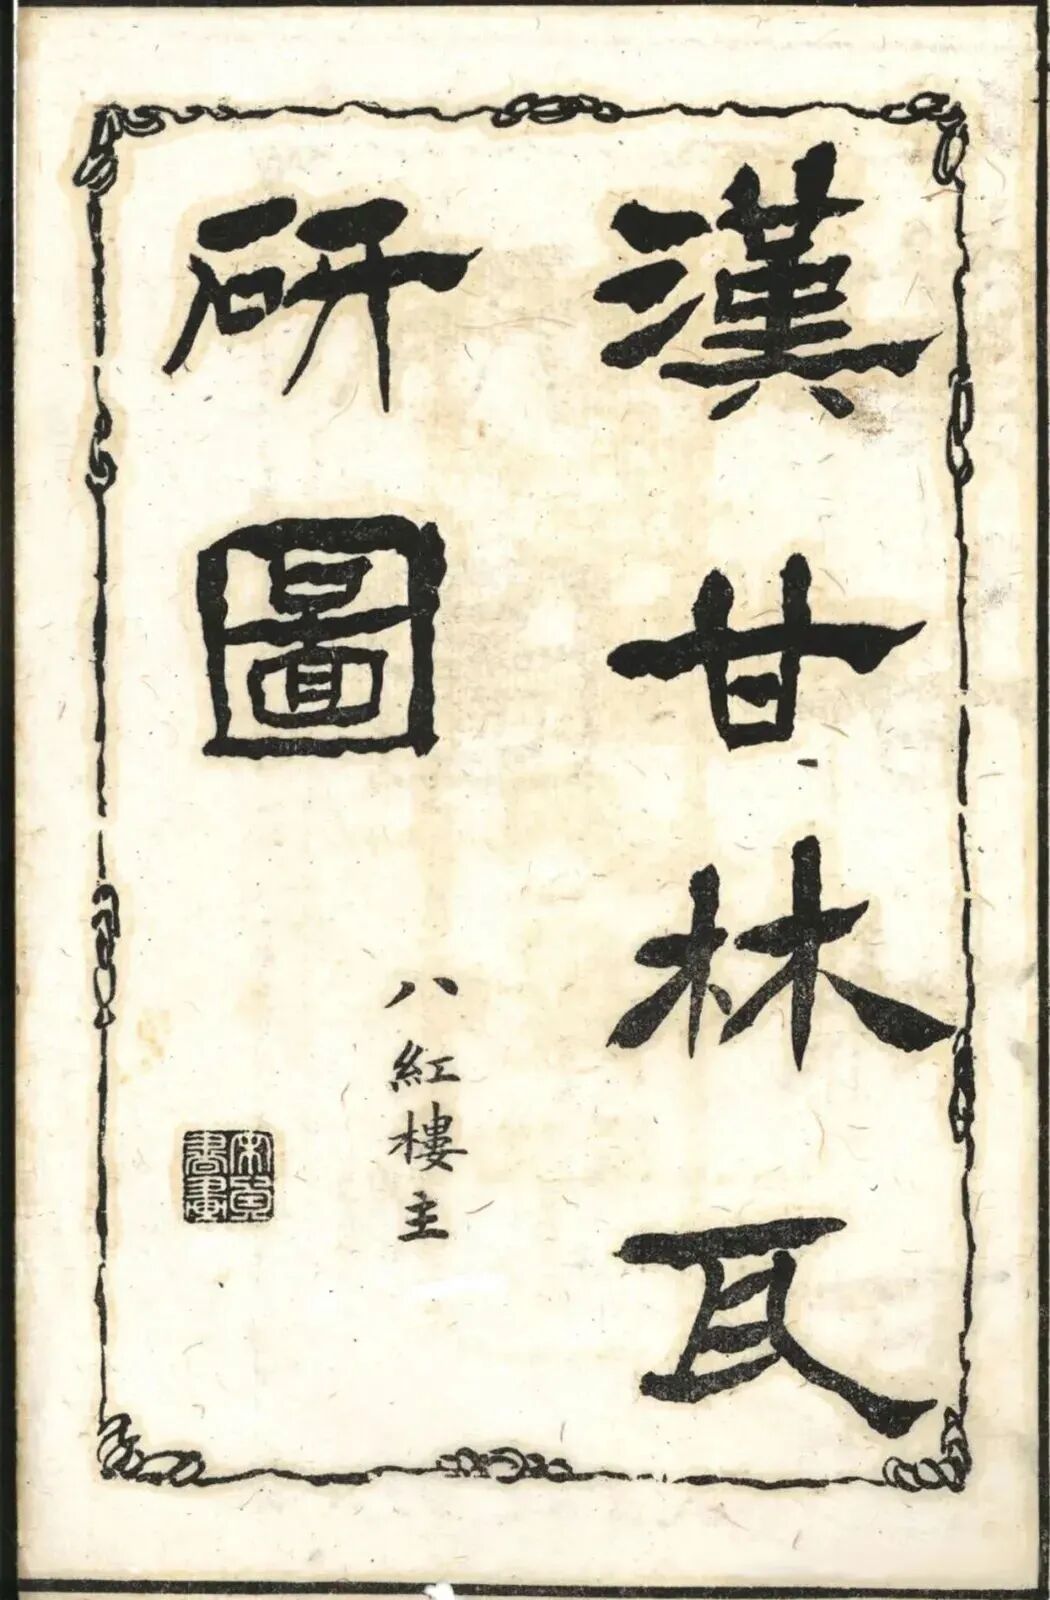 漢甘林瓦
研圖
八紅樓主